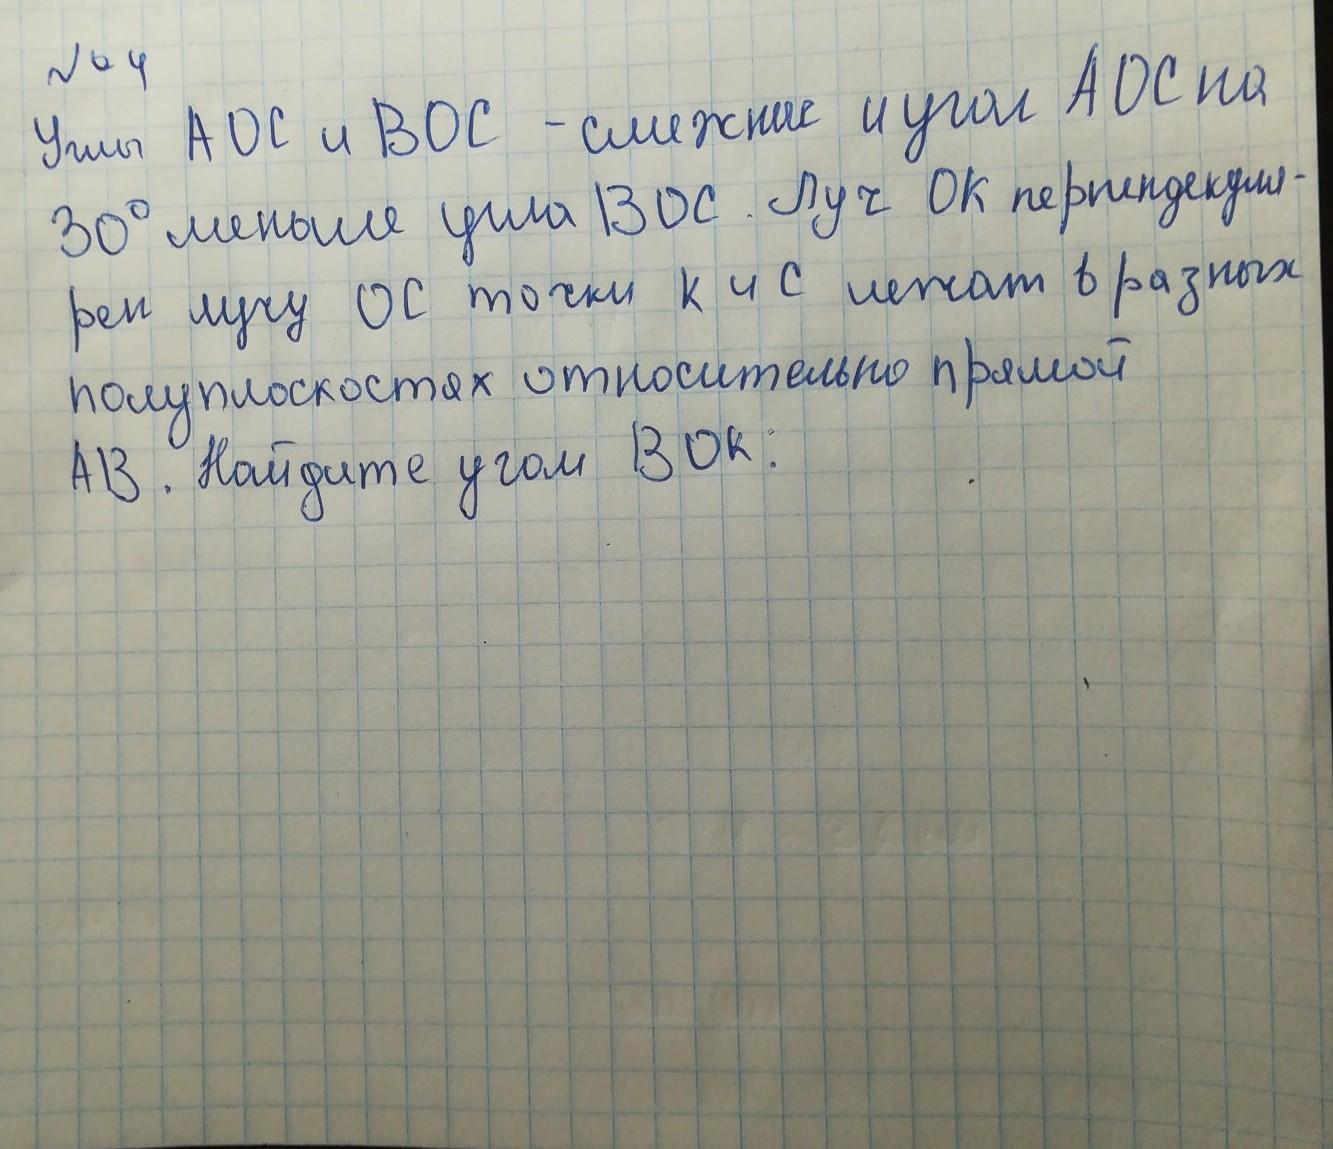 № 4
Углы АОС и ВОС - смежные и угол АОС на
30° меньше угла ВОС. Луч ОК перпендекуля-
рен лучу ОС точки К и С лежат в разных
полуплоскостях относительно прямой
АВ. Найдите угол ВОК: